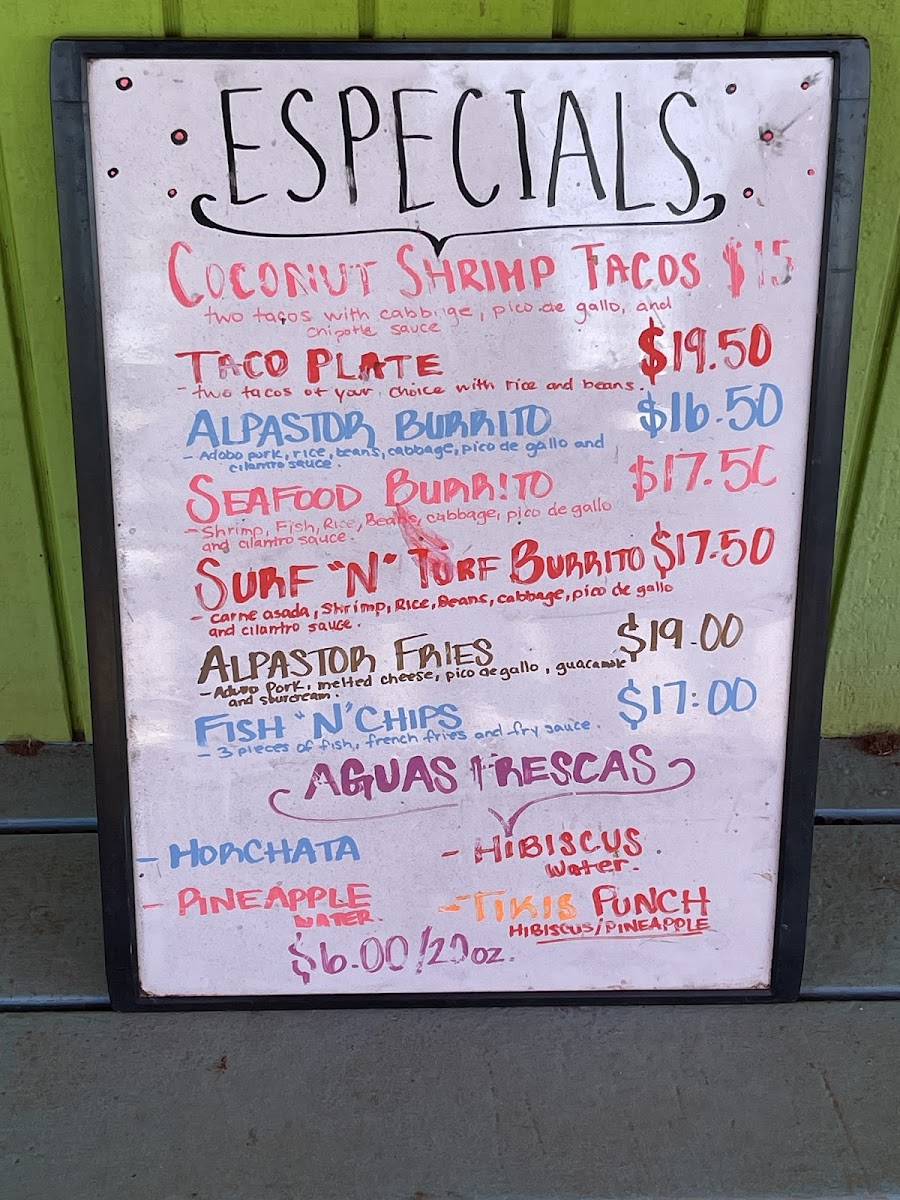 ESPECIALS
COCONUT SHRIMP TACOS $15
two tacos with cabbage, pico de gallo, and
chipotle sauce
TACO PLATE $19.50
- two tacos of your choice with rice and beans.
ALPASTOR BURRITO $16.50
- Adobo pork, rice, beans, cabbage, pico de gallo and
cilantro sauce.
SEAFOOD BURRITO $17.50
- Shrimp, Fish, Rice, Beans, cabbage, pico de gallo
and cilantro sauce.
SURF "N" TURF BURRITO $17.50
- carne asada, Shrimp, Rice, Beans, cabbage, pico de gallo
and cilantro sauce.
ALPASTOR FRIES $19.00
- Adobo Pork, melted cheese, pico de gallo, guacamole
and sourcream.
FISH "N" CHIPS $17:00
- 3 pieces of fish, french fries and fry sauce.
AGUAS FRESCAS
- HORCHATA
- HIBISCUS
Water.
- PINEAPPLE
WATER.
- TIKIS PUNCH
HIBISCUS/PINEAPPLE
$6.00/20oz.